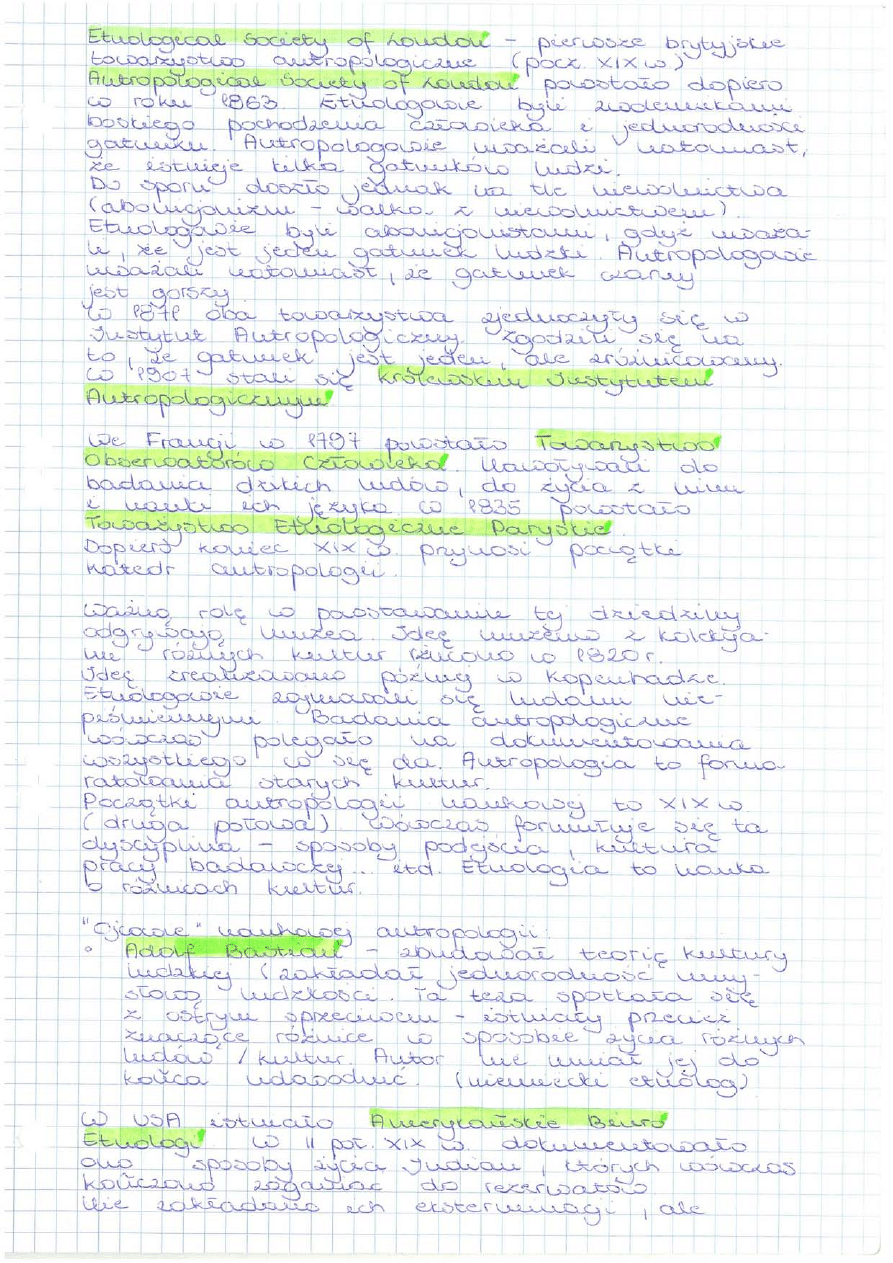 Etnological Society of London – pierwsze brytyjskie
towarzystwo antropologiczne (pocz. XIX w.)
Antropological Society of London powstało dopiero
w roku 1863. Etnologowie byli zwolennikami
boskiego pochodzenia człowieka i jednorodności
gatunku. Antropologowie uważali natomiast,
że istnieje kilka gatunków ludzi.
Do sporu doszło jednak na tle niewolnictwa
(abolicjonizm – walka z niewolnictwem).
Etnologowie byli abolicjonistami, gdyż uważa-
li, że jest jeden gatunek ludzki. Antropologowie
uważali natomiast, że gatunek czarny
jest gorszy.
W 1871 oba towarzystwa zjednoczyły się w
Instytut Antropologiczny. Zgodzili się na
to, że gatunek jest jeden, ale zróżnicowany.
W 1907 stali się Królewskim Instytutem
Antropologicznym
We Francji w 1797 powstało Towarzystwo
Obserwatorów Człowieka. Nawoływali do
badania dzikich ludów, do życia z nimi
i nauki ich języka. W 1835 powstało
Towarzystwo Etnologiczne Paryskie.
Dopiero koniec XIX w. przynosi początki
katedr antropologii.
Ważną rolę w powstawaniu tej dziedziny
odgrywają muzea. Ideę muzeum z kolekcja-
mi różnych kultur rzucono w 1820 r.
Ideę zrealizowano później w Kopenhadze.
Etnologowie zajmowali się ludami nie-
piśmiennymi. Badania antropologiczne
wówczas polegało na dokumentowaniu
wszystkiego co się da. Antropologia to forma
ratowania starych kultur.
Początki antropologii naukowej to XIX w.
(druga połowa). Wówczas formułuje się ta
dyscyplina – sposoby podejścia, kultura
pracy badawczej... itd. Etnologia to nauka
o różnicach kultur.
"Ojcowie" naukowej antropologii:
• Adolf Bastian – zbudował teorię kultury
ludzkiej (zakładał jednorodność umy-
słową ludzkości. Ta teza spotkała się
z ostrym sprzeciwem – istniały przecież
znaczące różnice w sposobie życia różnych
ludów / kultur. Autor nie umiał jej do
końca udowodnić. (niemiecki etnolog)
W USA istniało Amerykańskie Biuro
Etnologi. W II poł. XIX w. dokumentowało
ono sposoby życia Indian, których wówczas
kończono zaganiać do rezerwatów.
Nie zakładano ich eksterminacji, ale